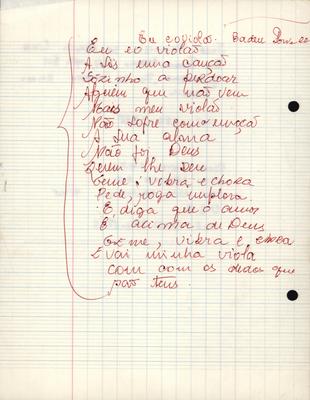 Eu e o violão. Baden Powell
Eu e o violão
A sós uma canção
Sozinho a perdoar
Alguém que não vem
Mais meu violão
Não sofre com emoção
A sua alma
Não foi Deus
Quem lhe deu
Geme, vibra, e chora
Pede, roga implora
E diga que o amor
É acima de Deus
Geme, vibra e chora
E vai minha viola
com com os dedos que
são teus.